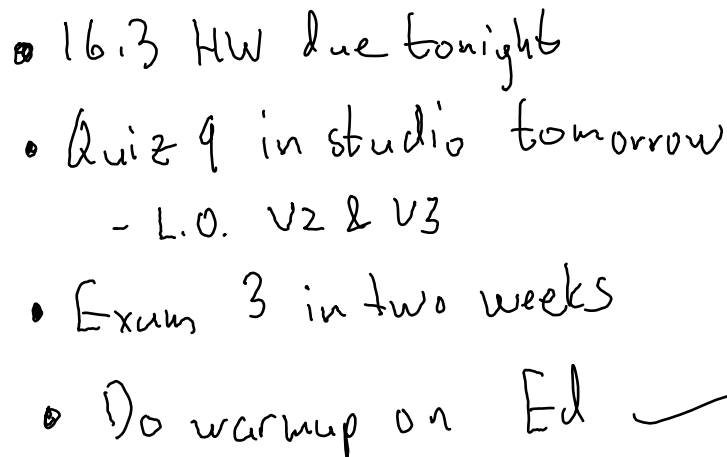 • 16.3 HW due tonight
• Quiz 9 in studio tomorrow
- L.O. V2 & V3
• Exam 3 in two weeks
• Do warmup on Ed